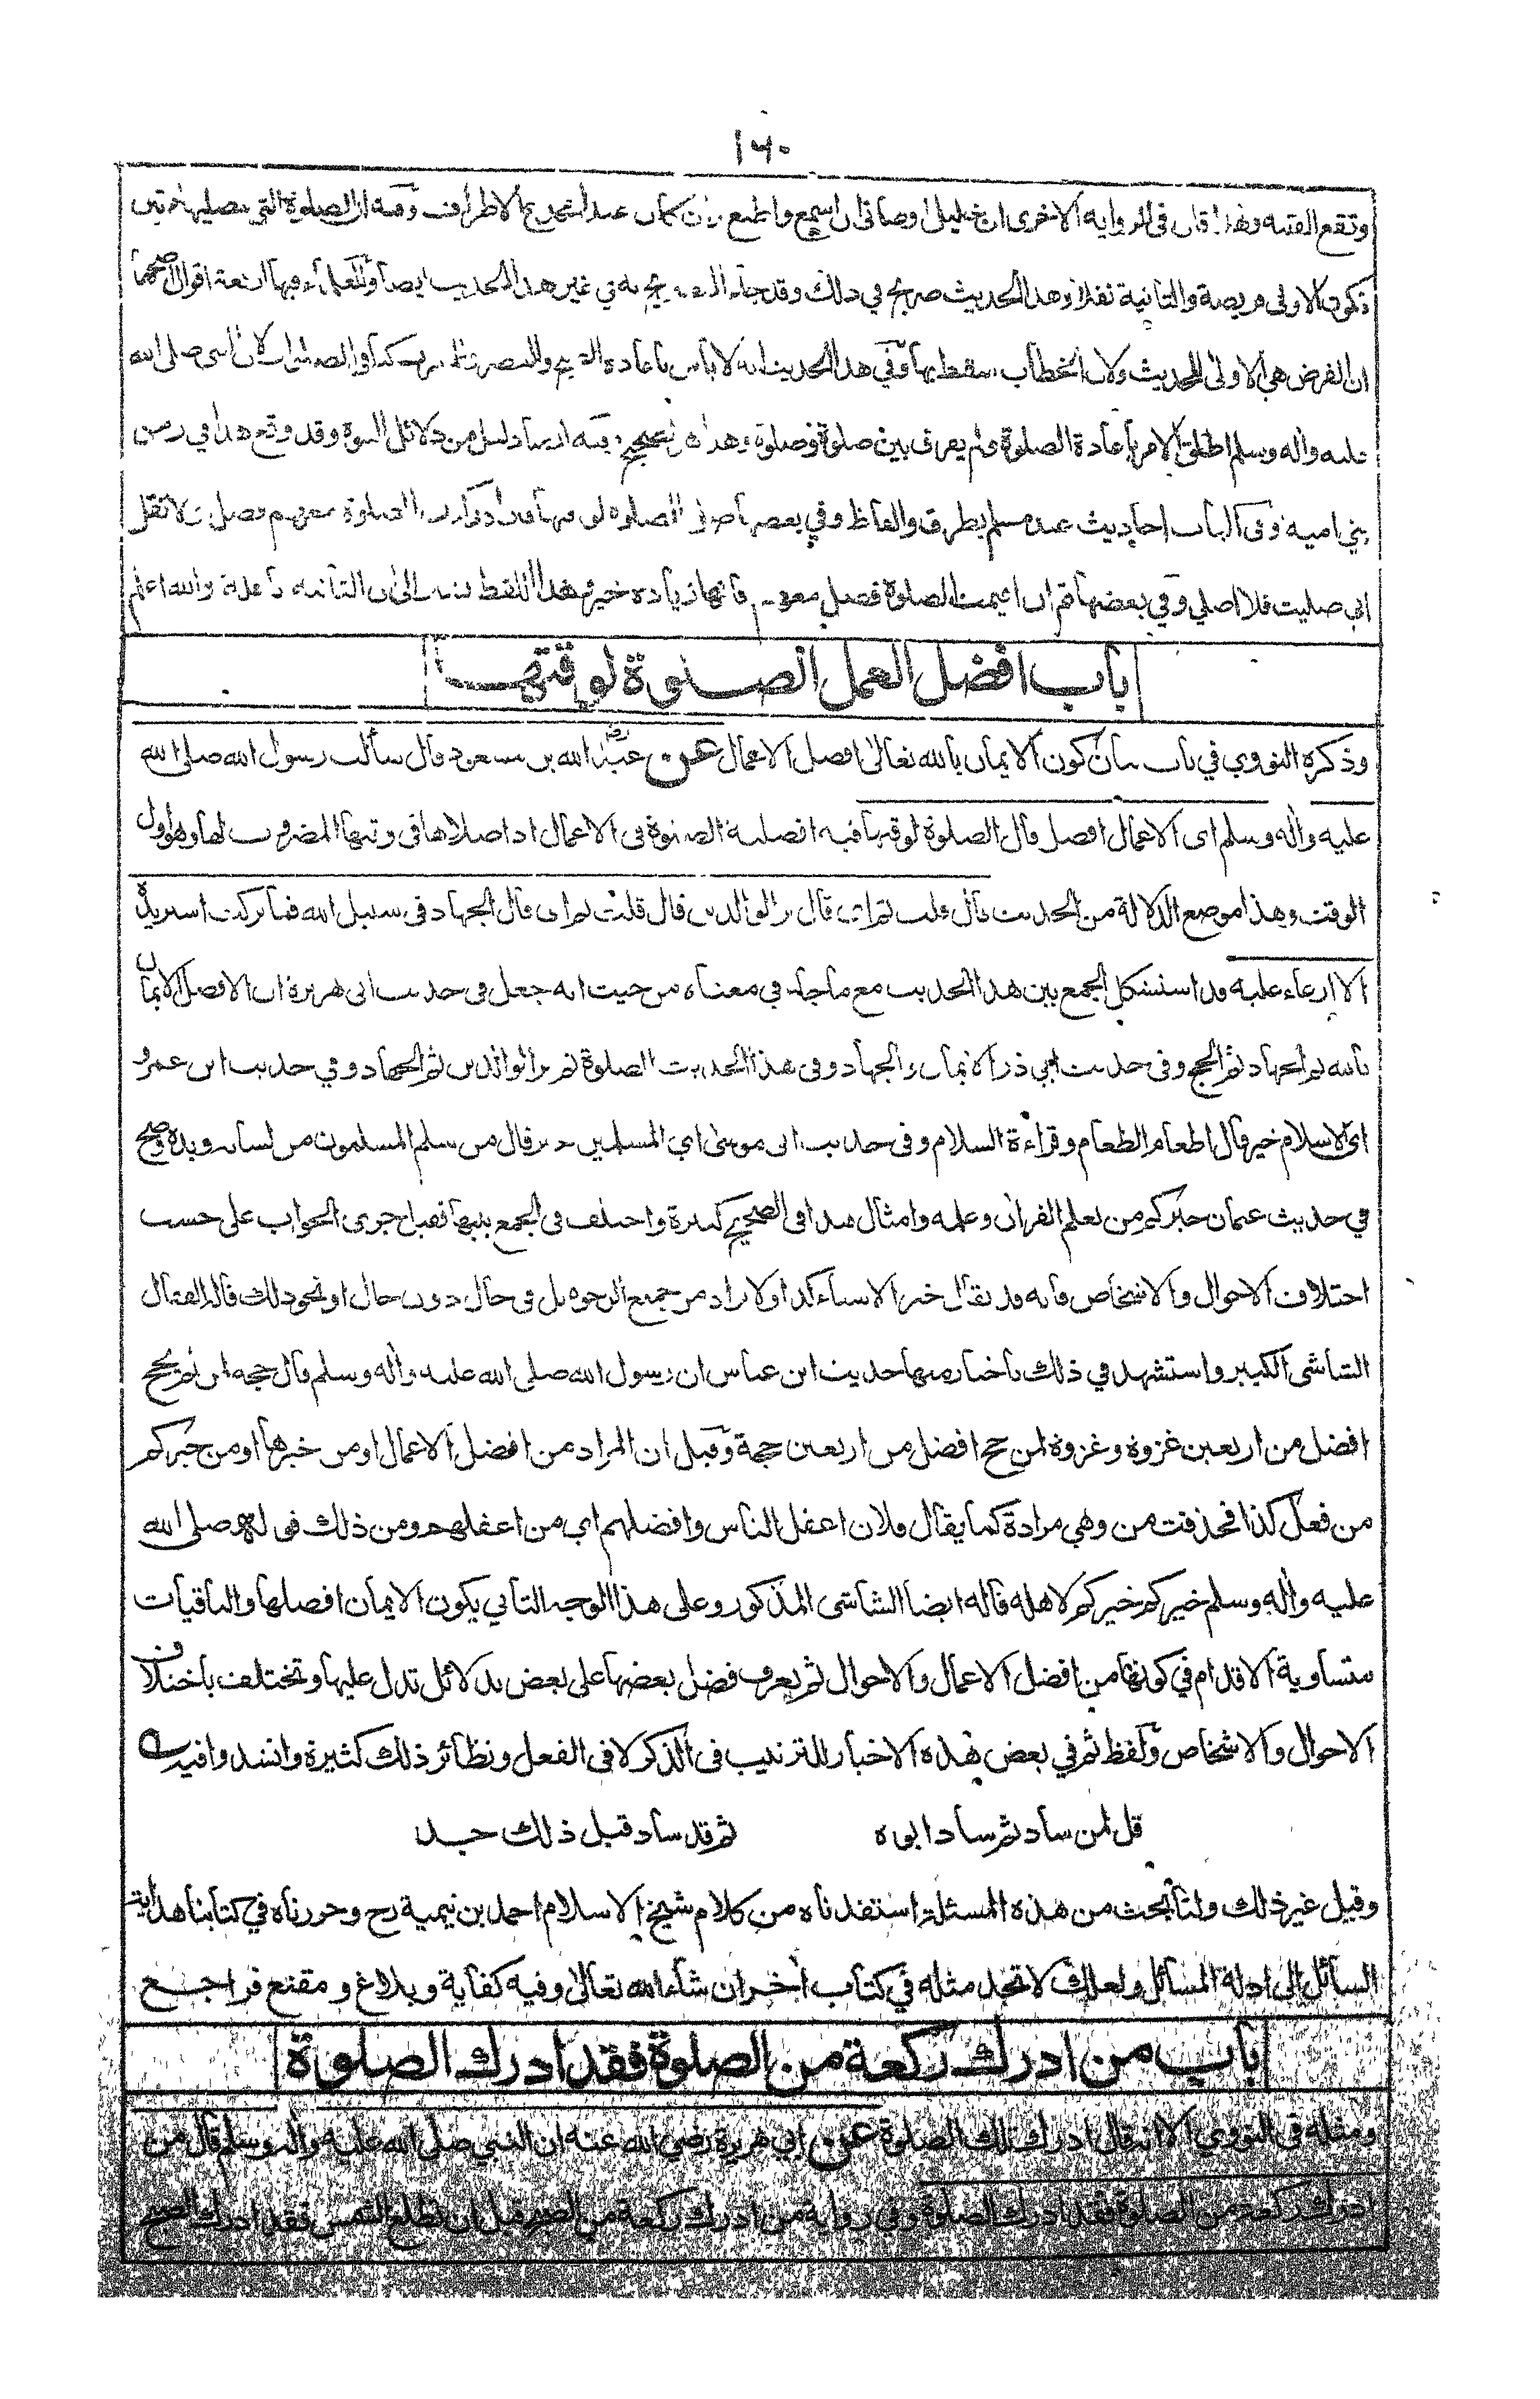 ١٦٠
وتقع الفتنه ولهذا قال في الروايه الاخرى ان خليلي اوصاني ان اسمع واطيع وان كان عبدا مجدع الاطراف وفيه ان الصلوة التي يصليها مرتين
تكون الاولى فريضة والثانية نفلا وهذا الحديث صريح في ذلك وقد جاء التصريح به في غير هذا الحديث ايضا وللعلماء فيها اربعة اقوال اصحها
ان الفرض هي الاولى للحديث ولان الخطاب سقط بها وفي هذا الحديث انه لا باس باعادة الصبح والعصر والمغرب كباقي الصلوات لان النبي صلى الله
عليه واله وسلم اطلق الامر باعادة الصلوة ولم يفرق بين صلوة وصلوة وهذا هو الصحيح وفيه ايضا دليل من دلائل النبوة وقد وقع هذا في زمن
بني امية وفي الباب احاديث عند مسلم بطرق والفاظ وفي بعضها صل الصلوة لوقتها فان ادركت الصلوة معهم فصل ولا تقل
اني صليت فلا اصلي وفي بعضها ثم ان اقيمت الصلوة فصل معهم فانها زيادة خير وهذا اللفظ الى ان الثانية نافلة والله اعلم
باب افضل العمل الصلوة لوقتها
وذكره النووي في باب بيان كون الايمان بالله تعالى افضل الاعمال عن عبد الله بن مسعود قال سألت رسول الله صلى الله
عليه واله وسلم اى الاعمال افضل قال الصلوة لوقتها فيه افضلية الصلوة في الاعمال اذا صلاها في وقتها المضروب لها وهو اول
الوقت وهذا موضع الدلالة من الحديث قال قلت ثم اى قال بر الوالدين قال قلت ثم اى قال الجهاد في سبيل الله فما تركت استزيده
الا ارعاء عليه قد استشكل الجمع بين هذا الحديث مع ما جاء في معناه من حيث انه جعل في حديث ابي هريرة ان الافضل الايمان
بالله ثم الجهاد ثم الحج وفي حديث ابي ذر الايمان والجهاد وفي هذا الحديث الصلوة ثم بر الوالدين ثم الجهاد وفي حديث ابن عمرو
اى الاسلام خير قال اطعام الطعام وقراءة السلام وفي حديث ابي موسى اي المسلمين خير قال من سلم المسلمون من لسانه ويده وصح
في حديث عثمان خيركم من تعلم القران وعلمه وامثال هذا في الصحيح كثيرة واختلف في الجمع بينها فقيل جرى الجواب على حسب
اختلاف الاحوال والاشخاص فانه قد يقال خير الاشياء كذا ولا يراد من جميع الوجوه بل في حال دون حال او نحو ذلك قاله القفال
الشاشي الكبير واستشهد في ذلك باخبار منها حديث ابن عباس ان رسول الله صلى الله عليه واله وسلم قال حجة لمن لم يحج
افضل من اربعين غزوة وغزوة لمن حج افضل من اربعين حجة وقيل ان المراد من افضل الاعمال او من خيرها او من خيركم
من فعل كذا فحذفت من وهي مرادة كما يقال فلان اعقل الناس وافضلهم اي من اعقلهم ومن ذلك قوله صلى الله
عليه واله وسلم خيركم خيركم لاهله قاله ايضا الشاشي المذكور وعلى هذا الوجه الثاني يكون الايمان افضلها والباقيات
متساوية الاقدام في كونها من افضل الاعمال والاحوال ثم يعرف فضل بعضها على بعض بدلائل تدل عليها وتختلف باختلاف
الاحوال والاشخاص ولفظ ثم في بعض هذه الاخبار للترتيب في الذكر لا في الفعل ونظائر ذلك كثيرة وانشدوا فيه
قل لمن ساد ثم ساد ابوه ثم قد ساد قبل ذلك جد
وقيل غير ذلك ولنا بحث من هذه المسئلة استفدناه من كلام شيخ الاسلام احمد بن تيمية رح وحررناه في كتابنا هداية
السائل الى ادلة المسائل ولعلك لا تجد مثله في كتاب اخر ان شاء الله تعالى وفيه كفاية وبلاغ و مقنع فراجع
باب من ادرك ركعة من الصلوة فقد ادرك الصلوة
ومثله في النووي الا انه قال ادرك تلك الصلوة عن ابي هريرة رضي الله عنه ان النبي صلى الله عليه واله وسلم قال من
ادرك ركعة من الصلوة فقد ادرك الصلوة وفي رواية من ادرك ركعة من الصبح قبل ان تطلع الشمس فقد ادرك الصبح